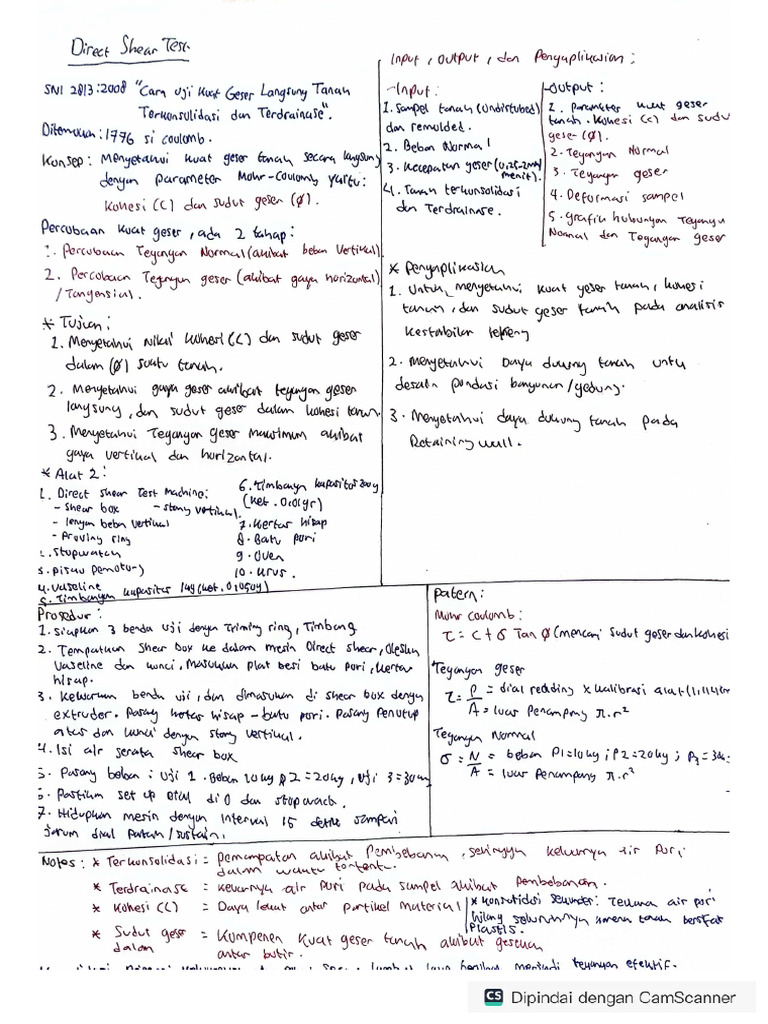 Direct Shear Test
SNI 2813:2008 "Cara Uji Kuat Geser Langsung Tanah
Terkonsolidasi dan Terdrainase".
Ditemukan : 1776 si coulomb.
Konsep : Mengetahui kuat geser tanah secara langsung
dengan parameter Mohr-Coulomb yaitu :
Kohesi (C) dan sudut geser (Ø).
Percobaan kuat geser, ada 2 tahap :
1. Percobaan Tegangan Normal (akibat beban vertikal)
2. Percobaan Tegangan geser (akibat gaya horizontal)
/Tangensial.
* Tujuan :
1. Mengetahui nilai kohesi (C) dan sudut geser
dalam (Ø) suatu tanah.
2. Mengetahui gaya geser akibat tegangan geser
langsung, dan sudut geser dalam kohesi tanah
3. Mengetahui Tegangan geser maksimum akibat
gaya vertikal dan horizontal.
* Alat 2 :
1. Direct shear Test Machine :
- shear box - stang vertikal.
- lengan beban vertikal
- Proving ring
2. Stopwatch
3. Pisau pemotong
4. Vaseline
5. Timbangan kapasitas
6. Timbangan kapasitas 200g
(ket. 0.01gr)
7. Kertas hisap
8. Batu pori
9. Oven
10. Kurs.
Input, Output, dan Pengaplikasian ;
- Input :
1. Sampel tanah (undistubed)
dan remolded.
2. Beban Normal
3. Kecepatan geser
menit).
4. Tanah terkonsolidasi
dan Terdrainase.
- Output :
1. Parameter kuat geser
tanah. Kohesi (C) dan sudut
geser (Ø).
2. Tegangan Normal
3. Tegangan geser
4. Deformasi sampel
5. grafik hubungan Tegangan
Normal dan Tegangan geser
* Pengaplikasian
1. Untuk mengetahui kuat geser tanah, kohesi
tanah, dan sudut geser tanah pada analisis
kestabilan lereng
2. Mengetahui Daya dukung tanah untuk
desain pondasi bangunan/gedung.
3. Mengetahui daya dukung tanah pada
Retaining wall.
Prosedur :
1. siapkan 3 benda uji dengan Triming ring, Timbang
2. Tempatkan Shear box ke dalam mesin Direct shear, Oleskan
Vaseline dan kunci, Masukkan Plat besi batu pori, kertas
hisap.
3. Keluarkan benda uji, dan dimasukan di shear box dengan
extruder. Pasang kertas hisap - batu pori. Pasang Penutup
atas dan kunci dengan stang vertikal.
4. Isi air serata shear box
5. Pasang beban : Uji 1. Beban 10kg, 2 = 20kg, Uji 3 = 30kg
6. Pastikan set up Dial di 0 dan stopwatch.
7. Hidupkan mesin dengan interval 15 detik sampai
jarum dial Patah/sustain.
Patern :
Mohr coulomb :
τ = C + σ Tan Ø (mencari sudut geser dan kohesi
Tegangan geser
τ = P/A = dial redding x kalibrasi alat
= luas Penampang π.r²
Tegangan Normal
σ = N/A = beban P1=10kg ; P2=20kg ;
= luas Penampang π.r²
Notes : * Terkonsolidasi = Pemampatan akibat Pembebanan, sehingga keluarnya air Pori
dalam waktu tertentu.
* Terdrainase = keluarnya air pori pada sampel akibat pembebanan.
* Kohesi (C) = Daya lekat antar partikel material
* konsolidasi sekunder : Tekanan air pori
hilang seluruhnya karena tanah bersifat
Plastis.
* Sudut geser = Kompenen kuat geser tanah akibat gesekan
dalam antar butir.
menjadi tegangan efektif.
CS Dipindai dengan CamScanner